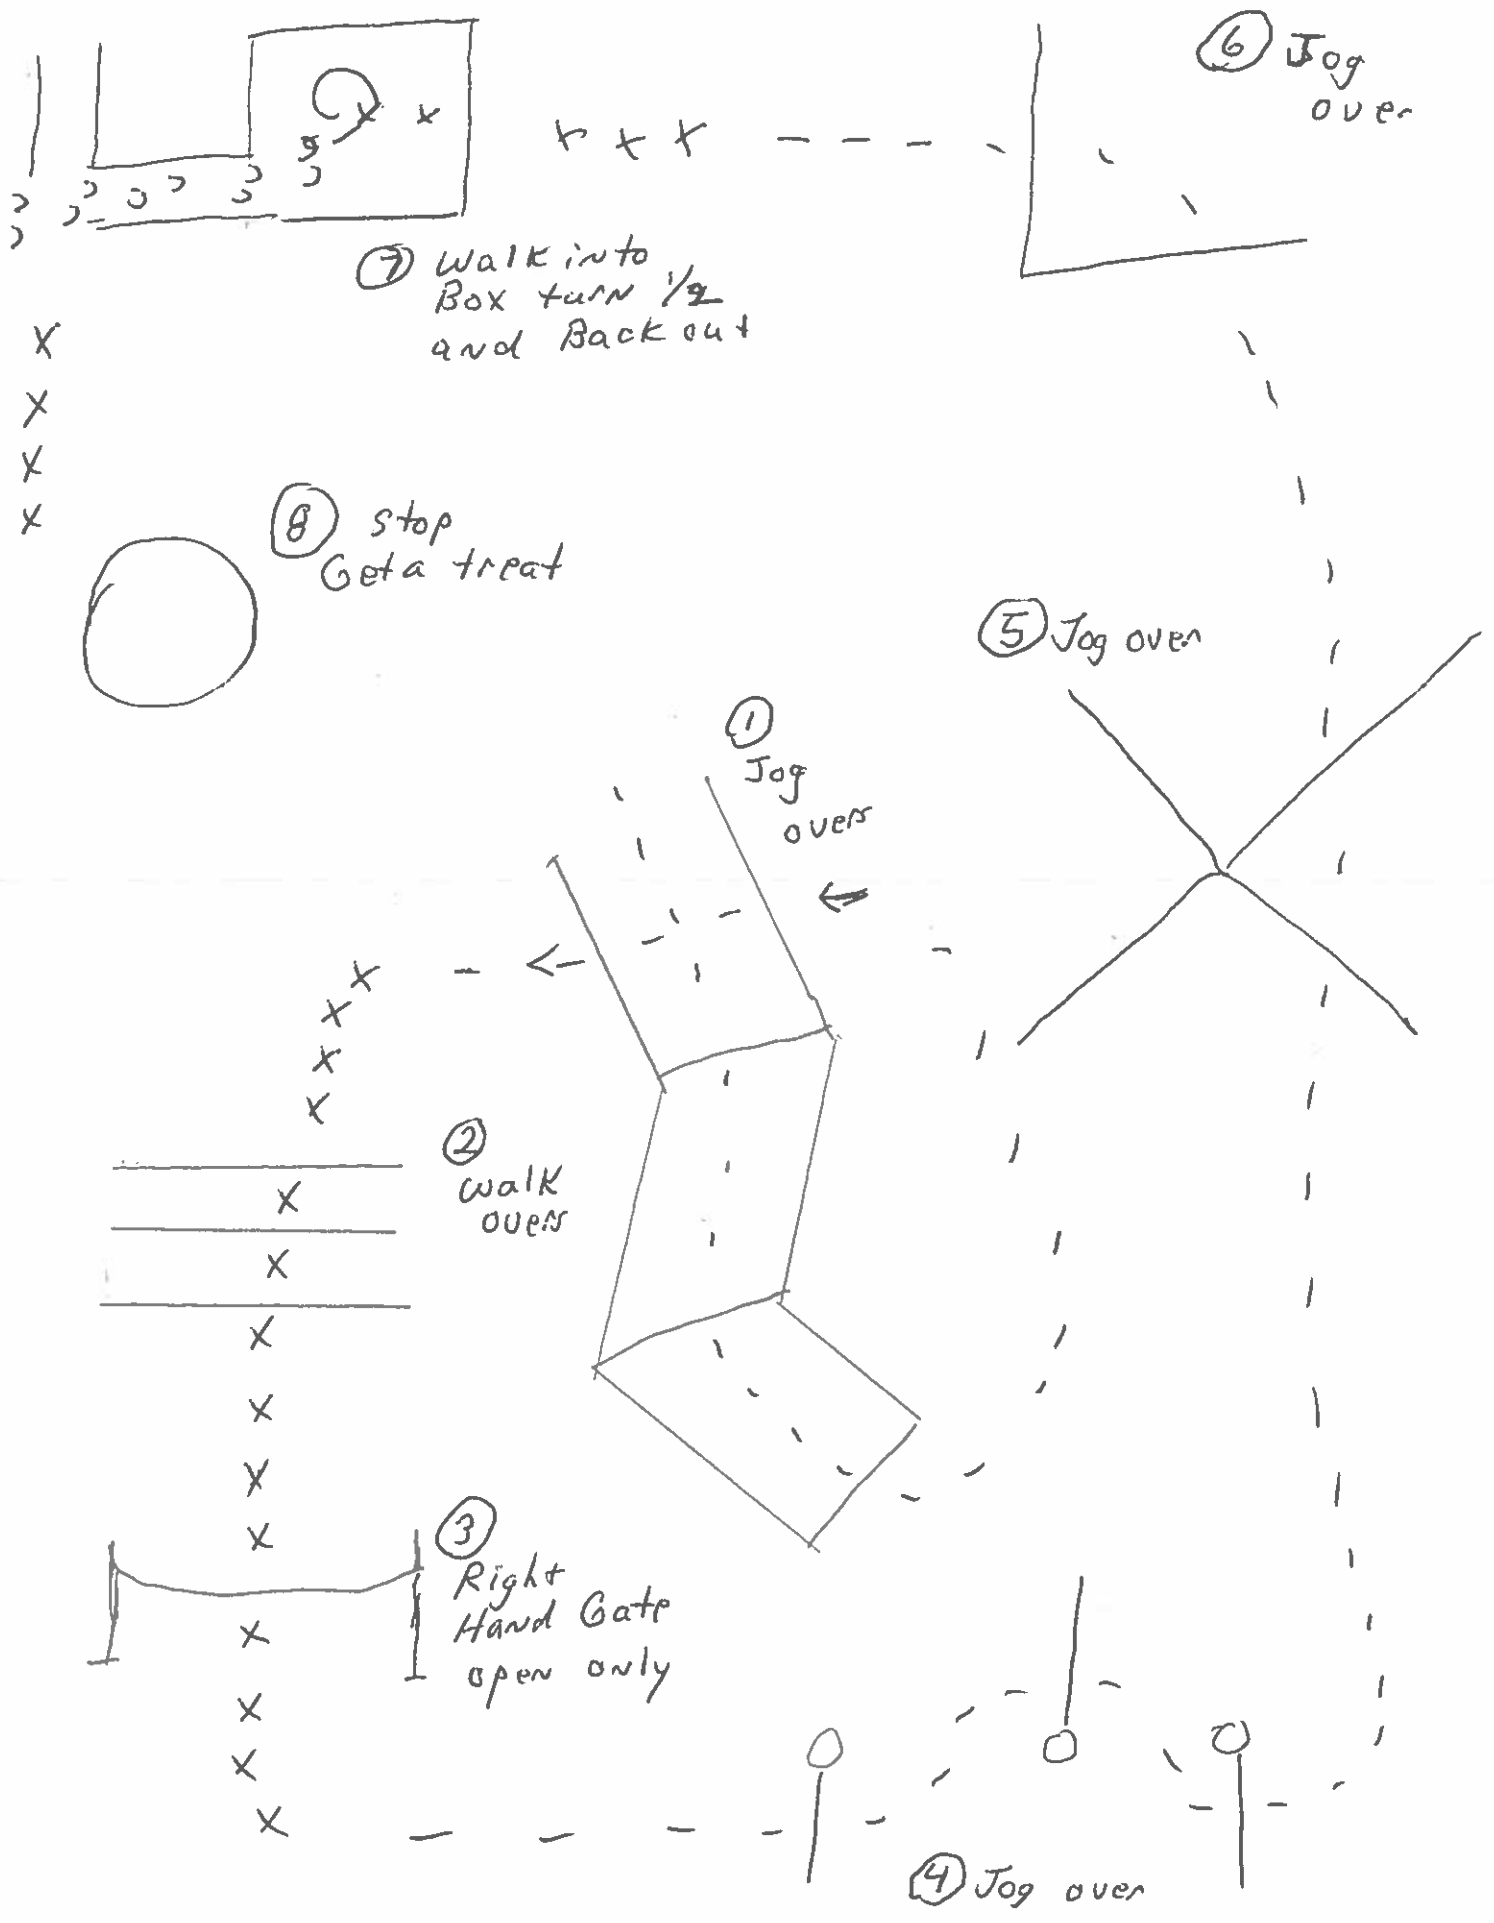 6 Jog
over
7 Walk into
Box turn 1/2
and Back out
8 stop
Get a treat
5 Jog over
1
Jog
overs
2
Walk
overs
3
Right
Hand Gate
open only
4 Jog over